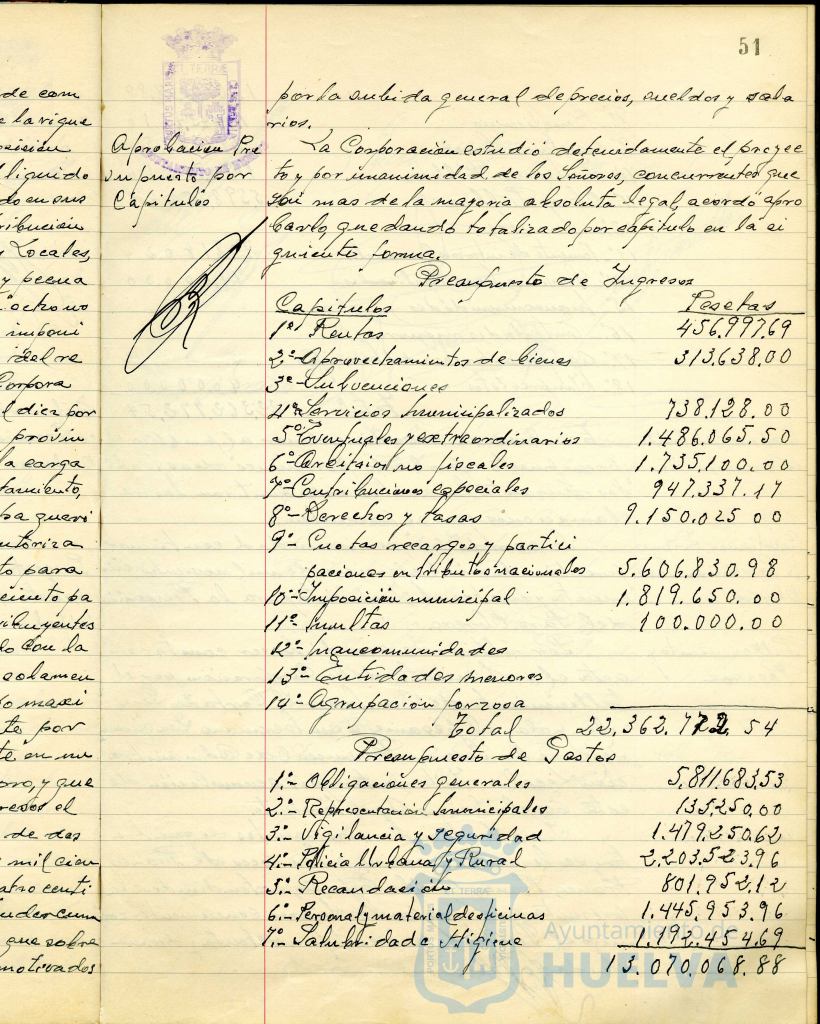 51
de com
e la rique
posición
l liquido
do en sus
ribución
y Locales,
y pecua
octavo
imponi
Corpora
l diez por
provin
la carga
tamiento,
ba queri
utoriza
to para
ciento pa
ribuyentes
do con la
solamen
o maxi
te por
te en un
oro, y que
resos el
de dos
mil cien
atro centi
que sobre
motivados
Aprobacion Pre
supuesto por
Capitulos
por la subida general de precios, sueldos y sala
rios.
La Corporación estudió detenidamente el proyec
to y por unanimidad de los Señores, concurrentes que
son mas de la mayoria absoluta legal, acordó apro
barlo quedando totalizado por capitulo en la si
guiente forma.
Presupuesto de Ingresos
Capitulos Pesetas
1º Rentas 456.997.69
2º-Aprovechamientos de bienes 313.638.00
3º-Subvenciones
4º-Servicios municipalizados 738.128.00
5º-Eventuales y extraordinarios 1.486.065.50
6º-Arbitrios no fiscales 1.735.100.00
7º-Contribuciones especiales 947.337.17
8º-Derechos y tasas 9.150.025 00
9º- Cuotas recargos y partici
paciones en tributos nacionales 5.606.830.98
10º-Imposición municipal 1.819.650.00
11º- multas 100.000.00
12º- mancomunidades
13º- Entidades menores
14º- Agrupación forzosa
Total 22,362.772 54
Presupuesto de Gastos
1.º- Obligaciones generales 5.811.683.53
2.º- Representación municipales 135.250.00
3.º- Vigilancia y seguridad 1.479.250.62
4.º- Policia Urbana y Rural 2.203.523.96
5.º- Recaudación 801.952.12
6.º- Personal y material de oficinas 1.445.953.96
7.º- Salubridad e Higiene 1.192.454.69
13.070.068.88
Ayuntamiento de
HUELVA